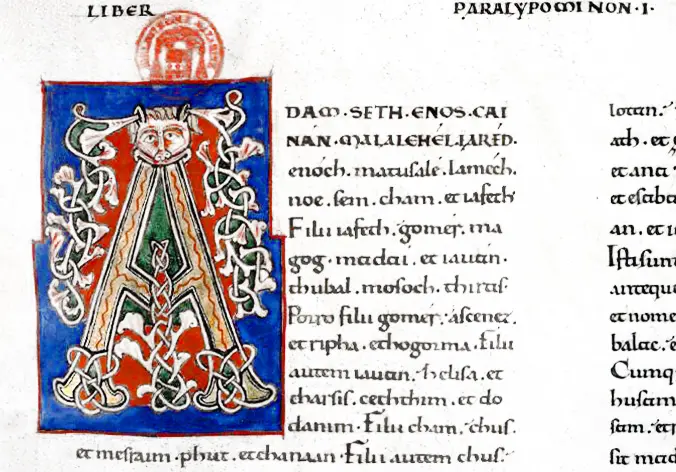 LIBER
PARALYPOMINON · I ·
A
DAM · SETH · ENOS · CAI
NAN · MALALEHEL · IARED ·
enoch · matusale · lamech ·
noe · sem · cham · et iafeth
Filii iafeth · gomer · ma
gog · madai · et iauan ·
thubal · mosoch · thiras
Porro filii gomer · ascenez ·
et ripha · et hogorma · Filii
autem iauan · helisa · et
tharsis · cethim · et do
danim · Filii cham · chus ·
et mesraim · phut · et chanaan · Filii autem chus ·
lotan ·
ath · et
et ana
et eseba
an · et
Isti sunt
anteque
et nome
balac ·
Cumq
husam
sam ·
sit mad